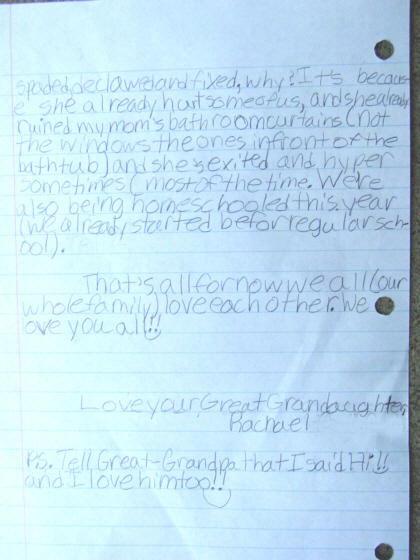 spaded, declawed and fixed, why? It's becaus
e she already hurt some of us, and she already
ruined my mom's bathroom curtains (not
the windows the ones infront of the
bathtub) and she is exited and hyper
sometimes (most of the time. We're
also being homeschooled this year
(we already started before regular sch-
ool).
That's all for now we all (our
whole family) love each other. We
love you all!!
Love your, Great Grandaughter,
Rachael
P.S. Tell Great-Grandpa that I said Hi!!
and I love him too!!